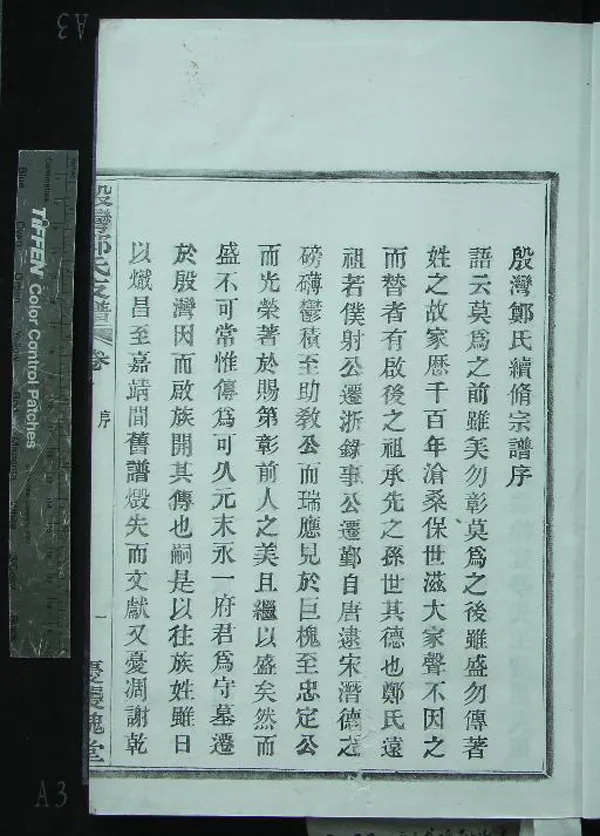 殷灣鄭氏續脩宗譜序
語云莫爲之前雖美勿彰莫爲之後雖盛勿傳著
姓之故家歷千百年滄桑保世滋大家聲不因之
而替者有啟後之祖承先之孫世其德也鄭氏遠
祖若僕射公遷浙錄事公遷鄞自唐逮宋潛德之
磅礴鬱積至助教公而瑞應見於巨槐至忠定公
而光榮著於賜第彰前人之美且繼以盛矣然而
盛不可常惟傳爲可久元末永一府君爲守墓遷
於殷灣因而啟族開其傳也嗣是以往族姓雖日
以熾昌至嘉靖間舊譜燬失而文獻又憂凋謝乾
殷灣鄭氏支譜
卷
序
一
槐堂
A3
A3
TIFFEN Color Control Patches